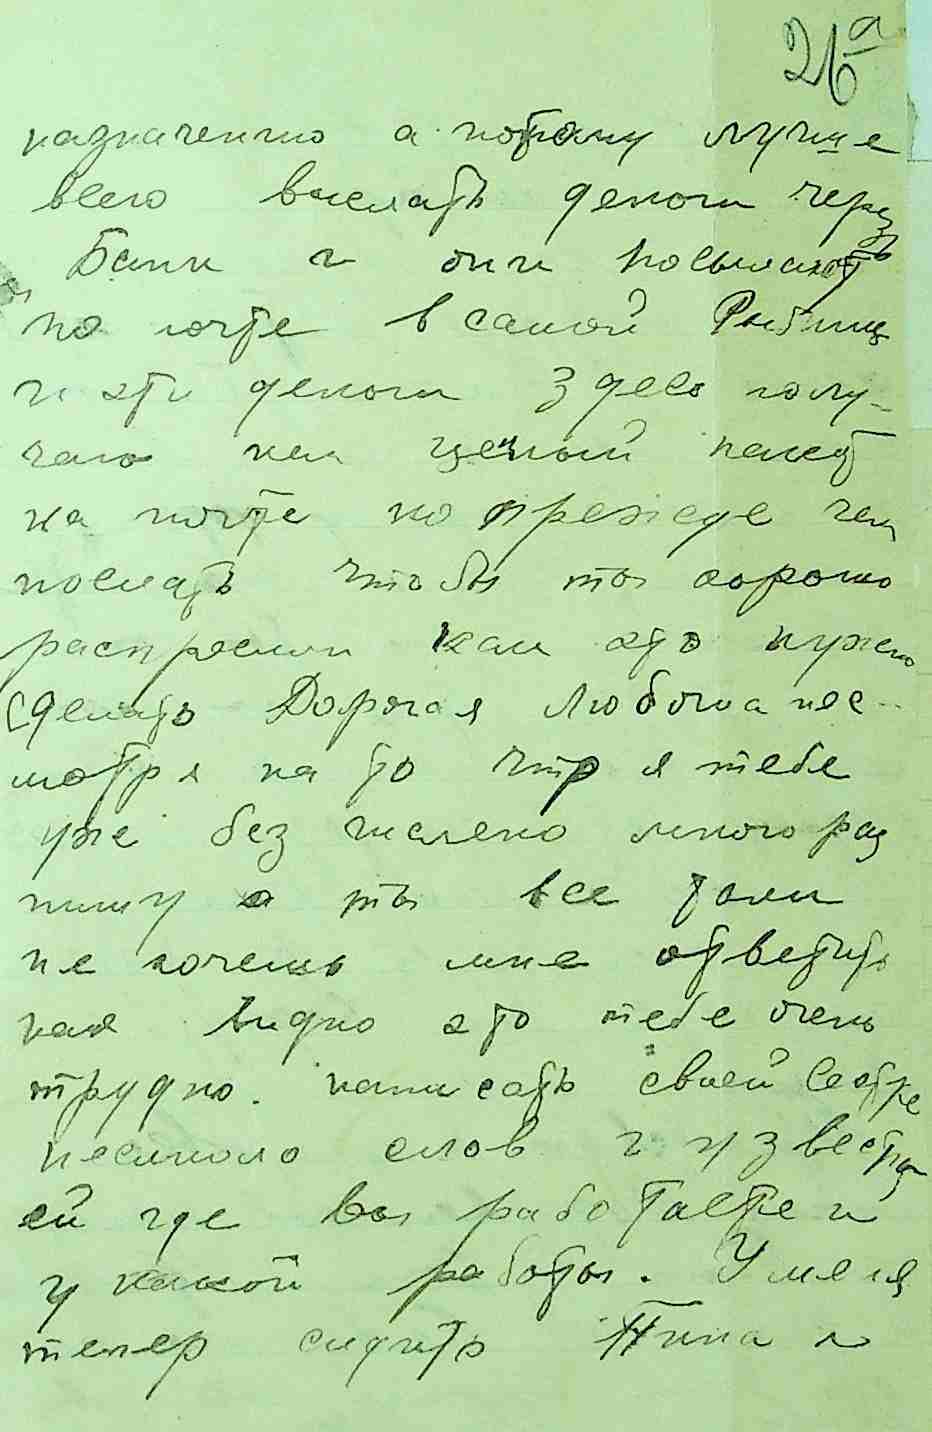 26а
назначению а потому лучше
всего выслать деньги через
Банк и они посылают
по почте в самой Рыбниц
и эти деньги здесь полу-
чаю как ценный пакет
на почте но прежде чем
послать чтобы ты хорошо
распросил как это нужно
сделать Дорогая Любочка нес-
мотря на то что я тебе
уже без числено много раз
пишу а ты все таки
не хочешь мне ответить
как видно это тебе очень
трудно. написать своей Сестре
несколько слов и известит
ей где вы работаете и
у какой работы. У меня
тепер сидить Нина и